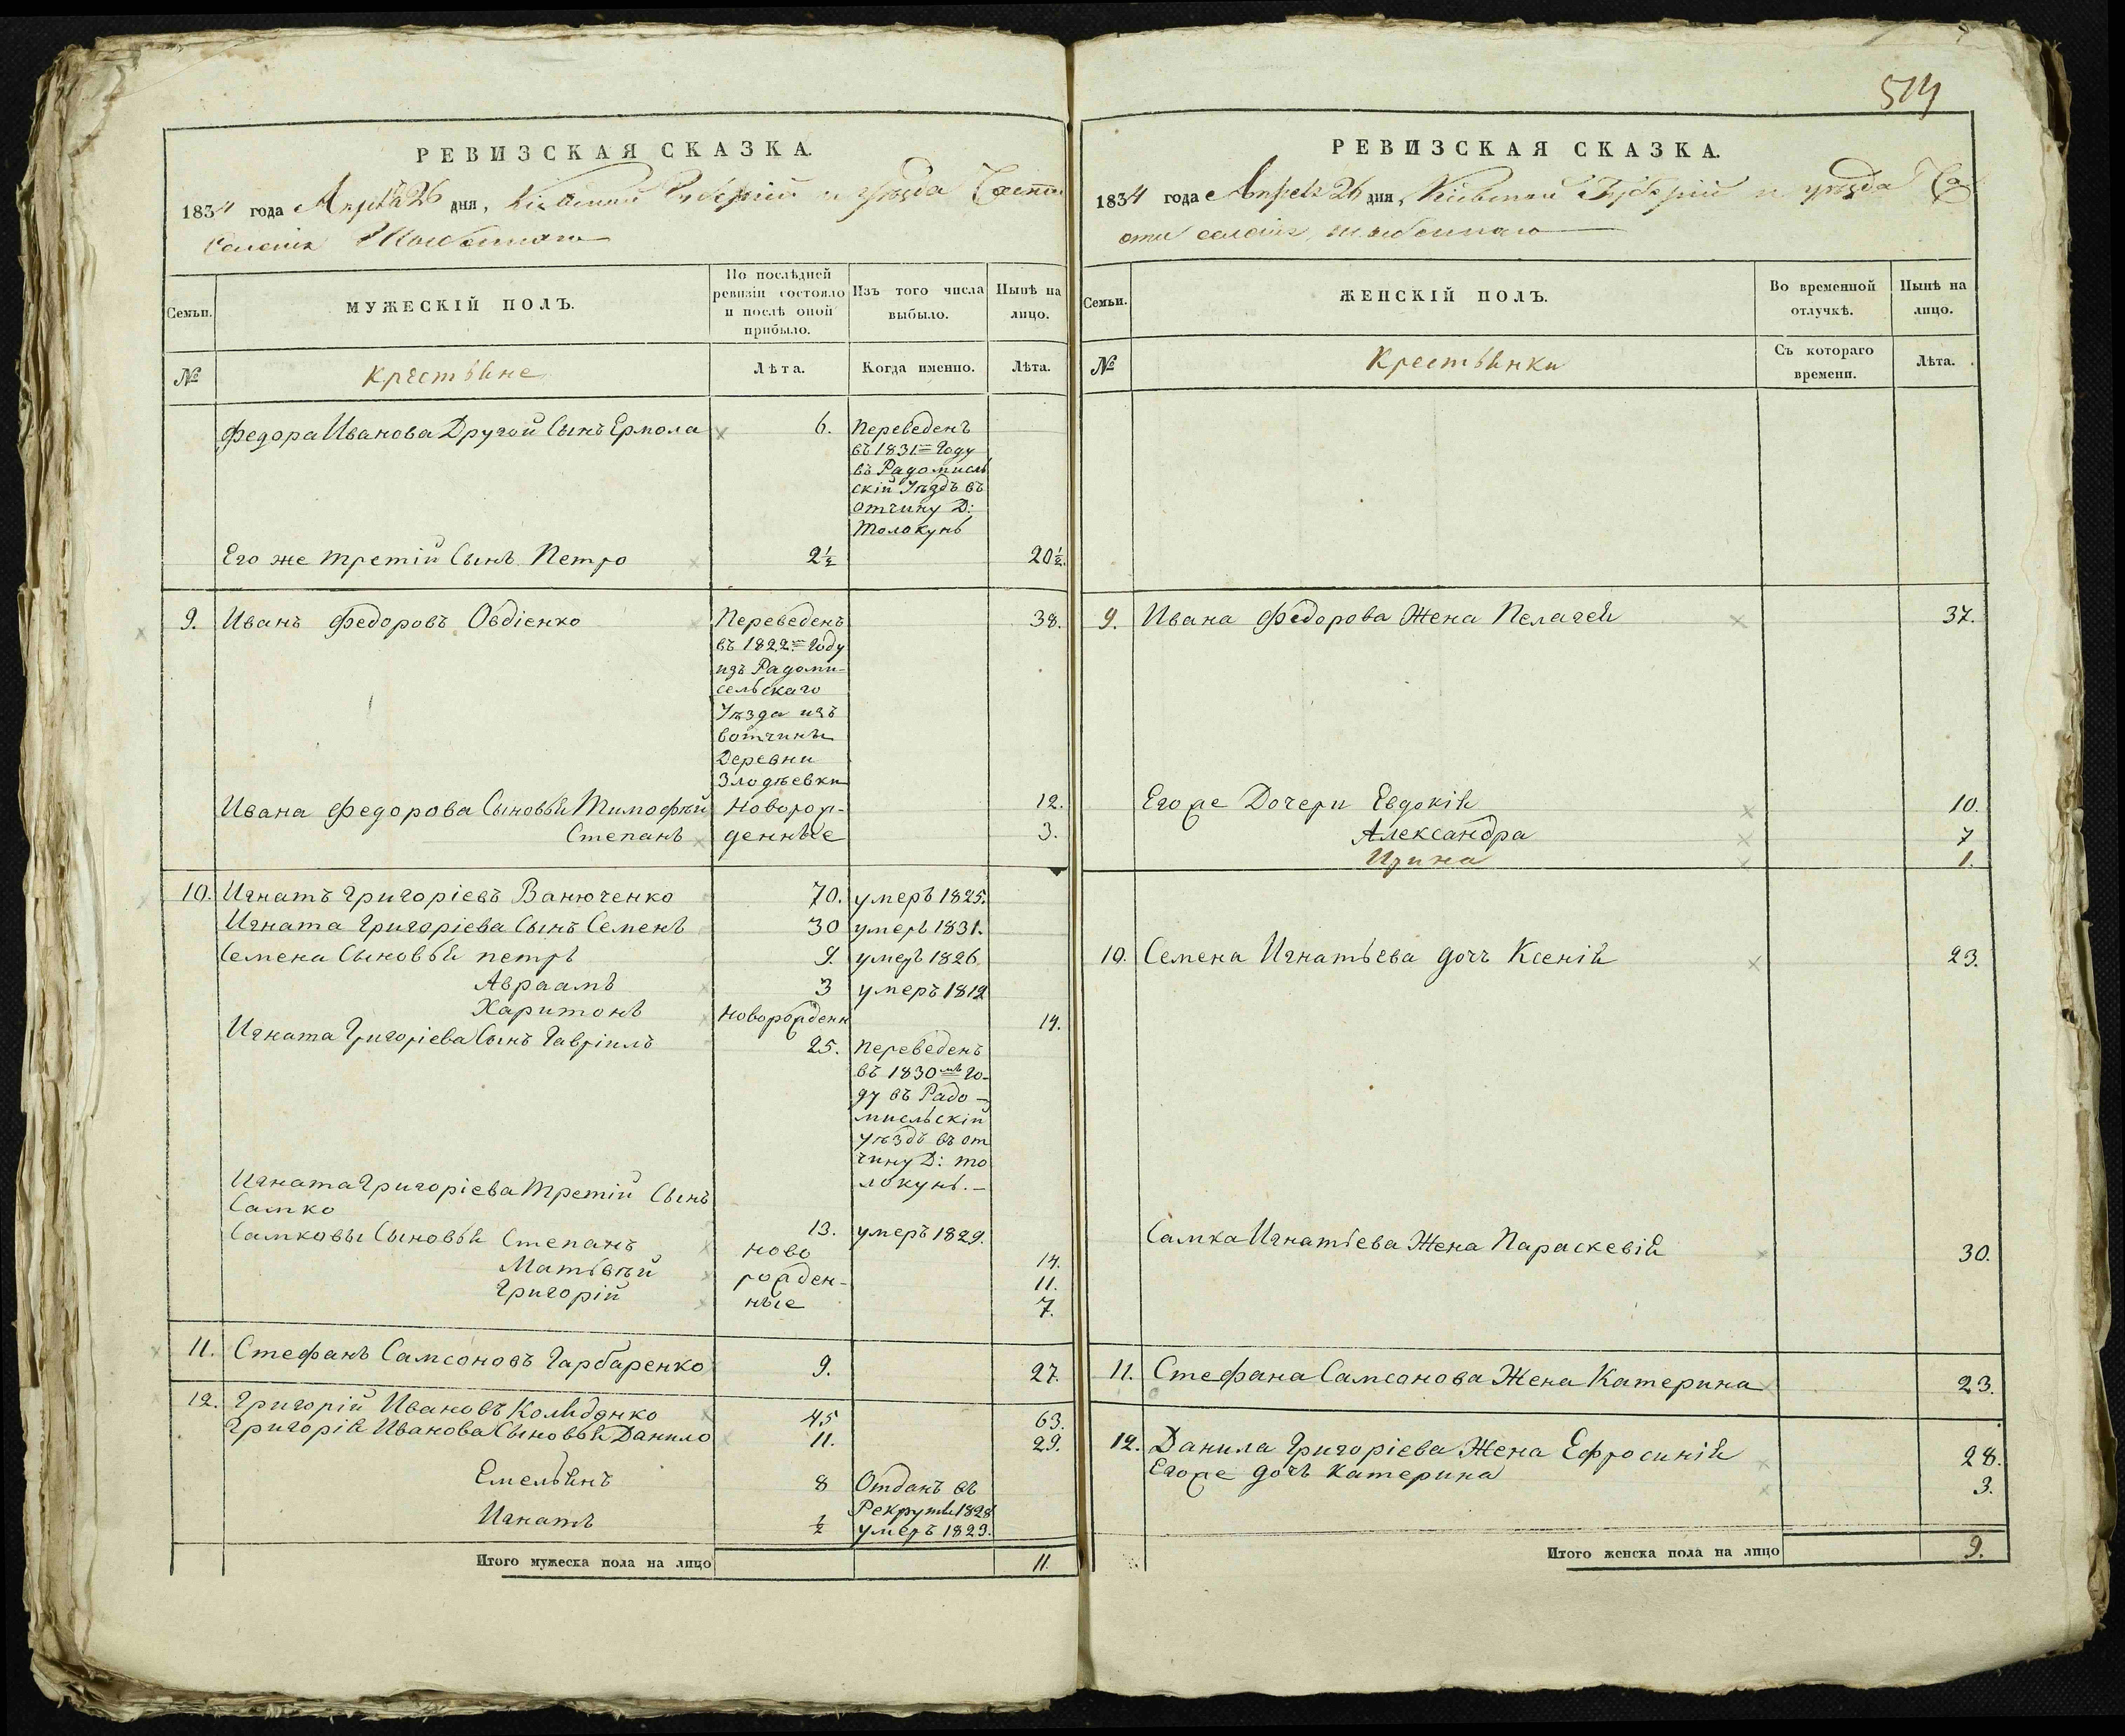 514
РЕВИЗСКАЯ СКАЗКА.
1834 года Апреля 26 дня, Кіевской Губерніи и уѣзда Части
Селенія
Семьи.
МУЖЕСКІЙ ПОЛЪ.
По послѣдней ревизіи состояло и послѣ оной прибыло.
Изъ того числа выбыло.
Нынѣ на лицо.
№
Крестьяне
Лѣта.
Когда именно.
Лѣта.
Федора Иванова Другой Сынъ Ермола 6. Переведенъ
въ 1831=Году
въ Радомисль
скій Уѣздъ въ
отчину Д:
Толокунь
Его же третій Сынъ Петро 2½ 20½.
9. Иванъ Федоровъ Овдіенко Переведенъ 38.
въ 1822=Году
изъ Радоми-
сельскаго
Уѣзда изъ
вотчины
Деревни
Злодѣевки
Ивана Федорова Сыновья Тимофѣй Новорож- 12.
Степанъ денные 3.
10. Игнатъ Григоріевъ Ванюченко 70. умеръ 1825.
Игната Григоріева Сынъ Семенъ 30 умеръ 1831.
Семена Сыновья петръ 9. умеръ 1826.
Авраамъ 3 умеръ 1819
Харитонъ Новорожденн 14.
Игната Григоріева Сынъ Гавріилъ 25. Переведенъ
въ 1830мъ Го-
ду въ Радо-
мисльскій
уѣздъ въ от
чину Д: то
локунь.-
Игната Григоріева Третій Сынъ
Самко 13. умеръ 1829.
Самковы Сыновья Степанъ ново 14.
Матьвѣй рожден- 11.
Григорій ные 7.
11. Стефанъ Самсоновъ Гарбаренко 9. 27.
12. Григорій Ивановъ 45 63.
Григорія Иванова Сыновья Данило 11. 29.
Емельянъ 8 Отданъ въ
Рекруты 1828
Игнатъ ½ умеръ 1829.
Итого мужеска пола на лицо 11.
РЕВИЗСКАЯ СКАЗКА.
1834 года Апреля 26 дня, Кіевской Губерніи и уѣзда Ча
сти селенія
Семьи.
ЖЕНСКІЙ ПОЛЪ.
Во временной отлучкѣ.
Нынѣ на лицо.
№
Крестьянки
Съ котораго времени.
Лѣта.
9. Ивана Федорова Жена Пелагея 37.
Егоже Дочери Евдокія 10.
Александра 7
Ирина 1.
10. Семена Игнатьева дочъ Ксенія 23.
Самка Игнатіева Жена Параскевія 30.
11. Стефана Самсонова Жена Катерина 23.
12. Данила Григоріева Жена Ефросинія 28.
Егоже дочъ Катерина 3.
Итого женска пола на лицо 9.